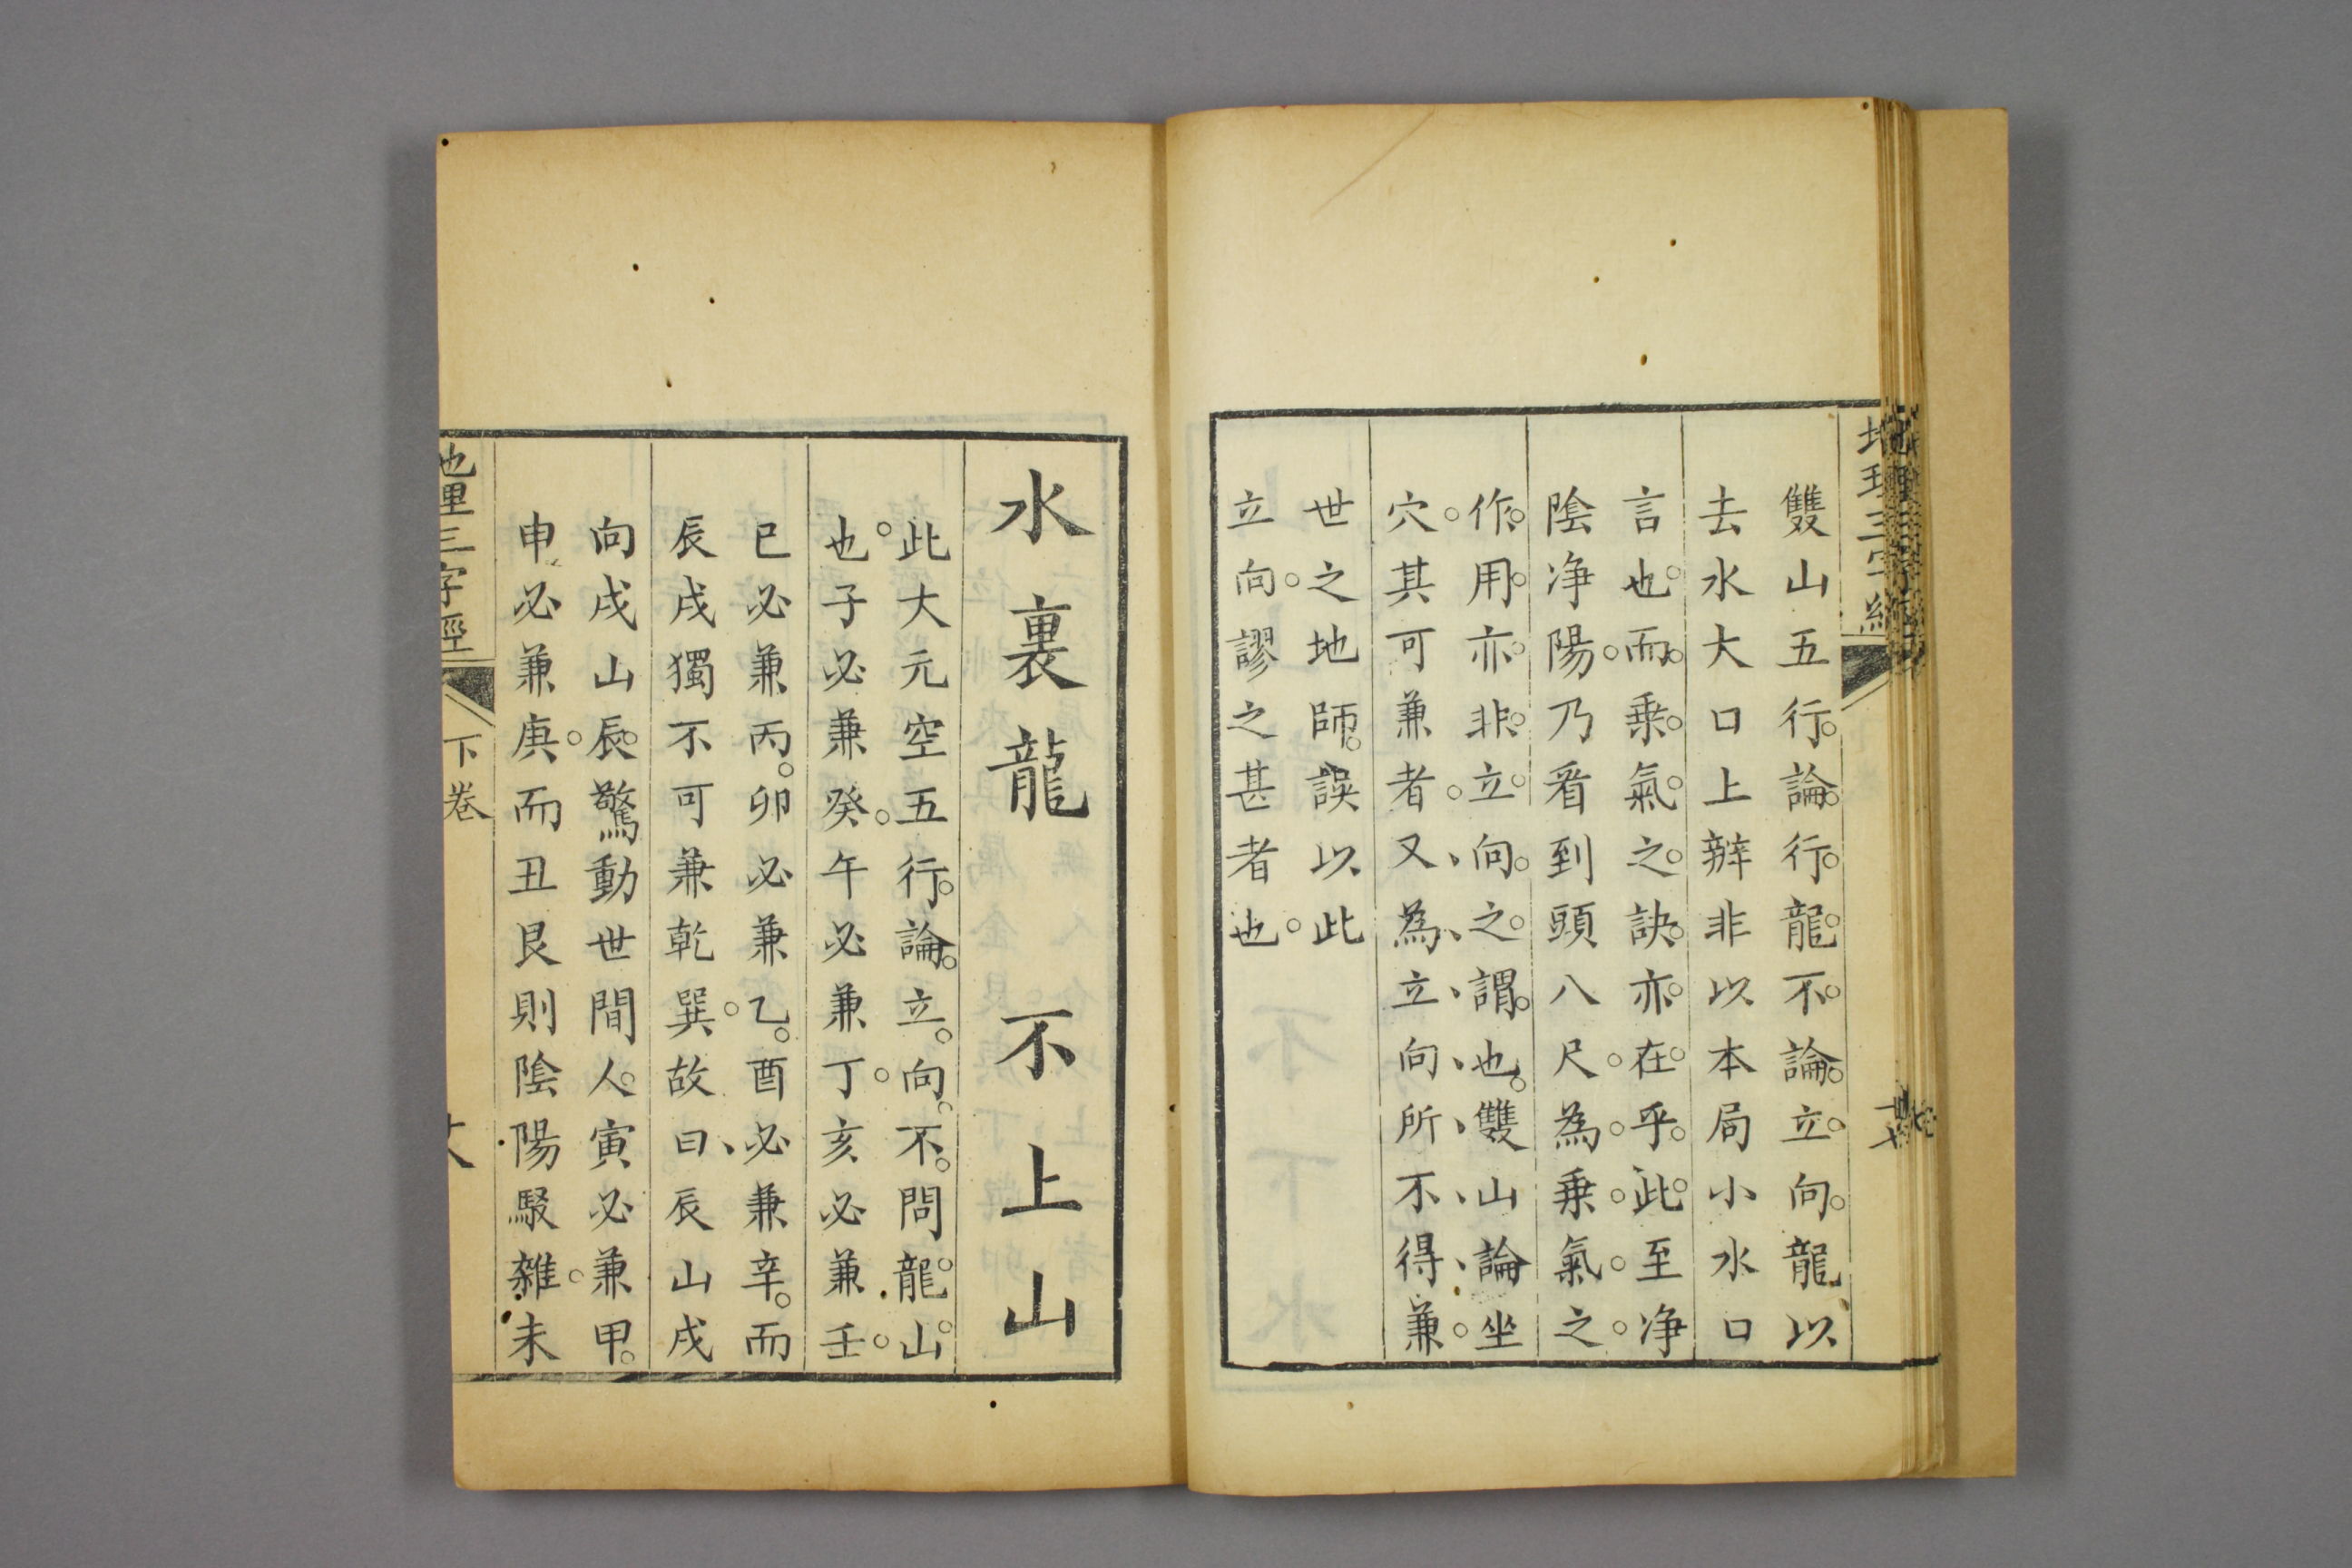 地理三字經
雙山五行論行龍不論立向龍以
去水大口上辨非以本局小水口
言也而乗氣之訣亦在乎此至淨
陰淨陽乃看到頭八尺為乗氣之
作用亦非立向之謂也雙山論坐
穴其可兼者又為立向所不得兼
世之地師誤以此
立向謬之甚者也
水裏龍不上山
此大元空五行論立向不問龍山
也子必兼癸午必兼丁亥必兼壬
巳必兼丙卯必兼乙酉必兼辛而
辰戌獨不可兼乾巽故曰辰山戌
向戌山辰驚動世間人寅必兼甲
申必兼庚而丑艮則陰陽駁雜未
地理三字經
下卷